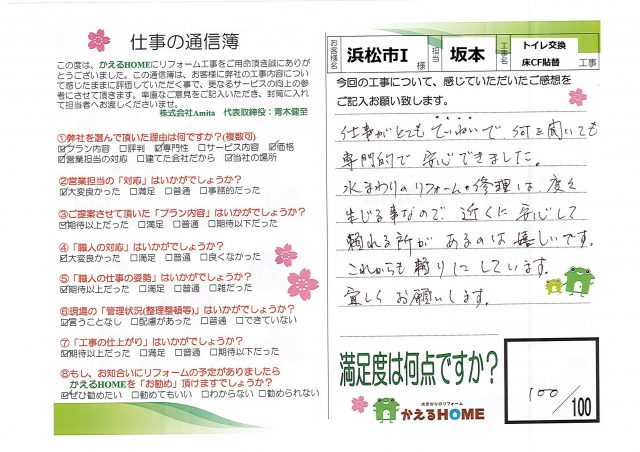 仕事の通信簿
この度は、かえるHOMEにリフォーム工事をご用命頂き誠にありが
とうございました。この通信簿は、お客様に弊社の工事内容につい
て感じたままに評価していただく事で、更なるサービスの向上の参
考にさせて頂きます。率直なご意見をご記入いただき、封筒に入れ
て担当者へお渡しくださいませ。
株式会社Amita 代表取締役：青木健至
①弊社を選んで頂いた理由は何ですか？(複数可)
☑プラン内容 □評判 ☑専門性 □サービス内容 ☑価格
☑営業担当の対応 □建てた会社だから ☑当社の場所
②営業担当の「対応」はいかがでしょうか？
☑大変良かった □満足 □普通 □事務的だった
③ご提案させて頂いた「プラン内容」はいかがでしょうか？
☑期待以上だった □満足 □普通 □期待以下だった
④「職人の対応」はいかがでしょうか？
☑大変良かった □満足 □普通 □良くなかった
⑤「職人の仕事の姿勢」はいかがでしょうか？
☑期待以上だった □満足 □普通 □雑だった
⑥現場の「管理状況(整理整頓等)」はいかがでしょうか？
☑言うことなし □配慮があった □普通 □できていない
⑦「工事の仕上がり」はいかがでしょうか？
☑期待以上だった □満足 □普通 □期待以下だった
⑧もし、お知合いにリフォームの予定がありましたら
かえるHOMEを「お勧め」頂けますでしょうか？
☑ぜひ勧めたい □勧めてもいい □わからない □勧められない
お客様名 浜松市I 様 担当 坂本 工事名 トイレ交換 床CF貼替 工事
今回の工事について、感じていただいたご感想を
ご記入お願い致します。
仕事がとてもていねいで、何を聞いても
専門的で安心できました。
水まわりのリフォーム・修理は度々
生じる事なので近くに安心して
頼れる所があるのは嬉しいです。
これからも頼りにしています。
宜しくお願いします。
満足度は何点ですか？
100/100
水まわりのリフォーム
かえるHOME